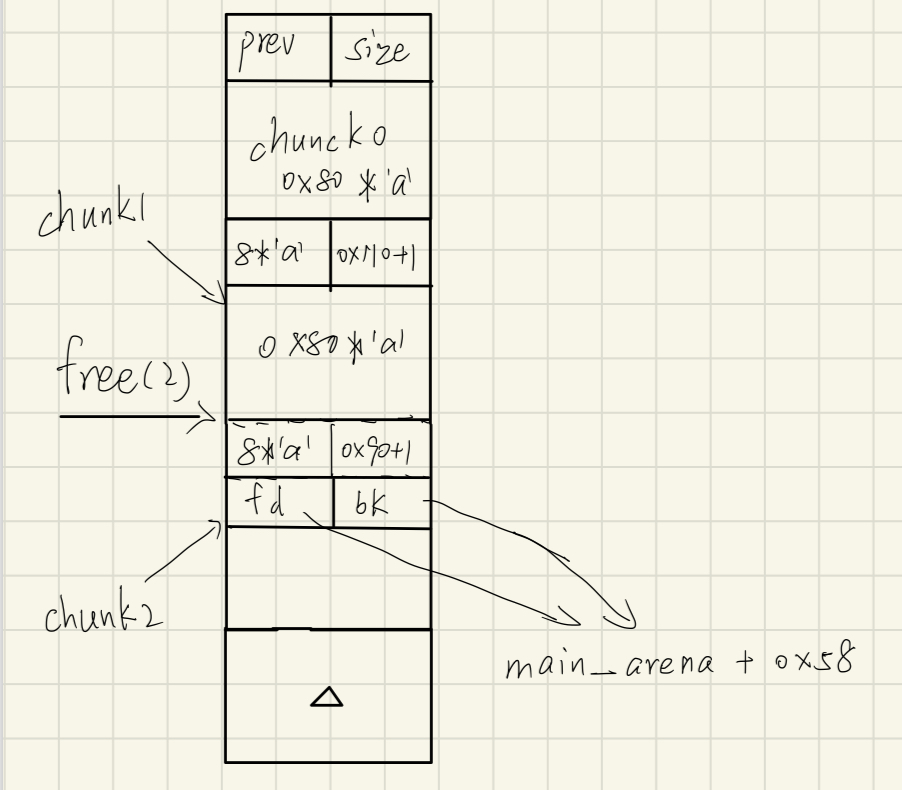 prev size
chunck0
0x80 *'a'
chunk1
8*'a' 0x110+1
0x80*'a'
free(2)
8*'a' 0x90+1
fd bk
chunk2
main_arena + 0x58